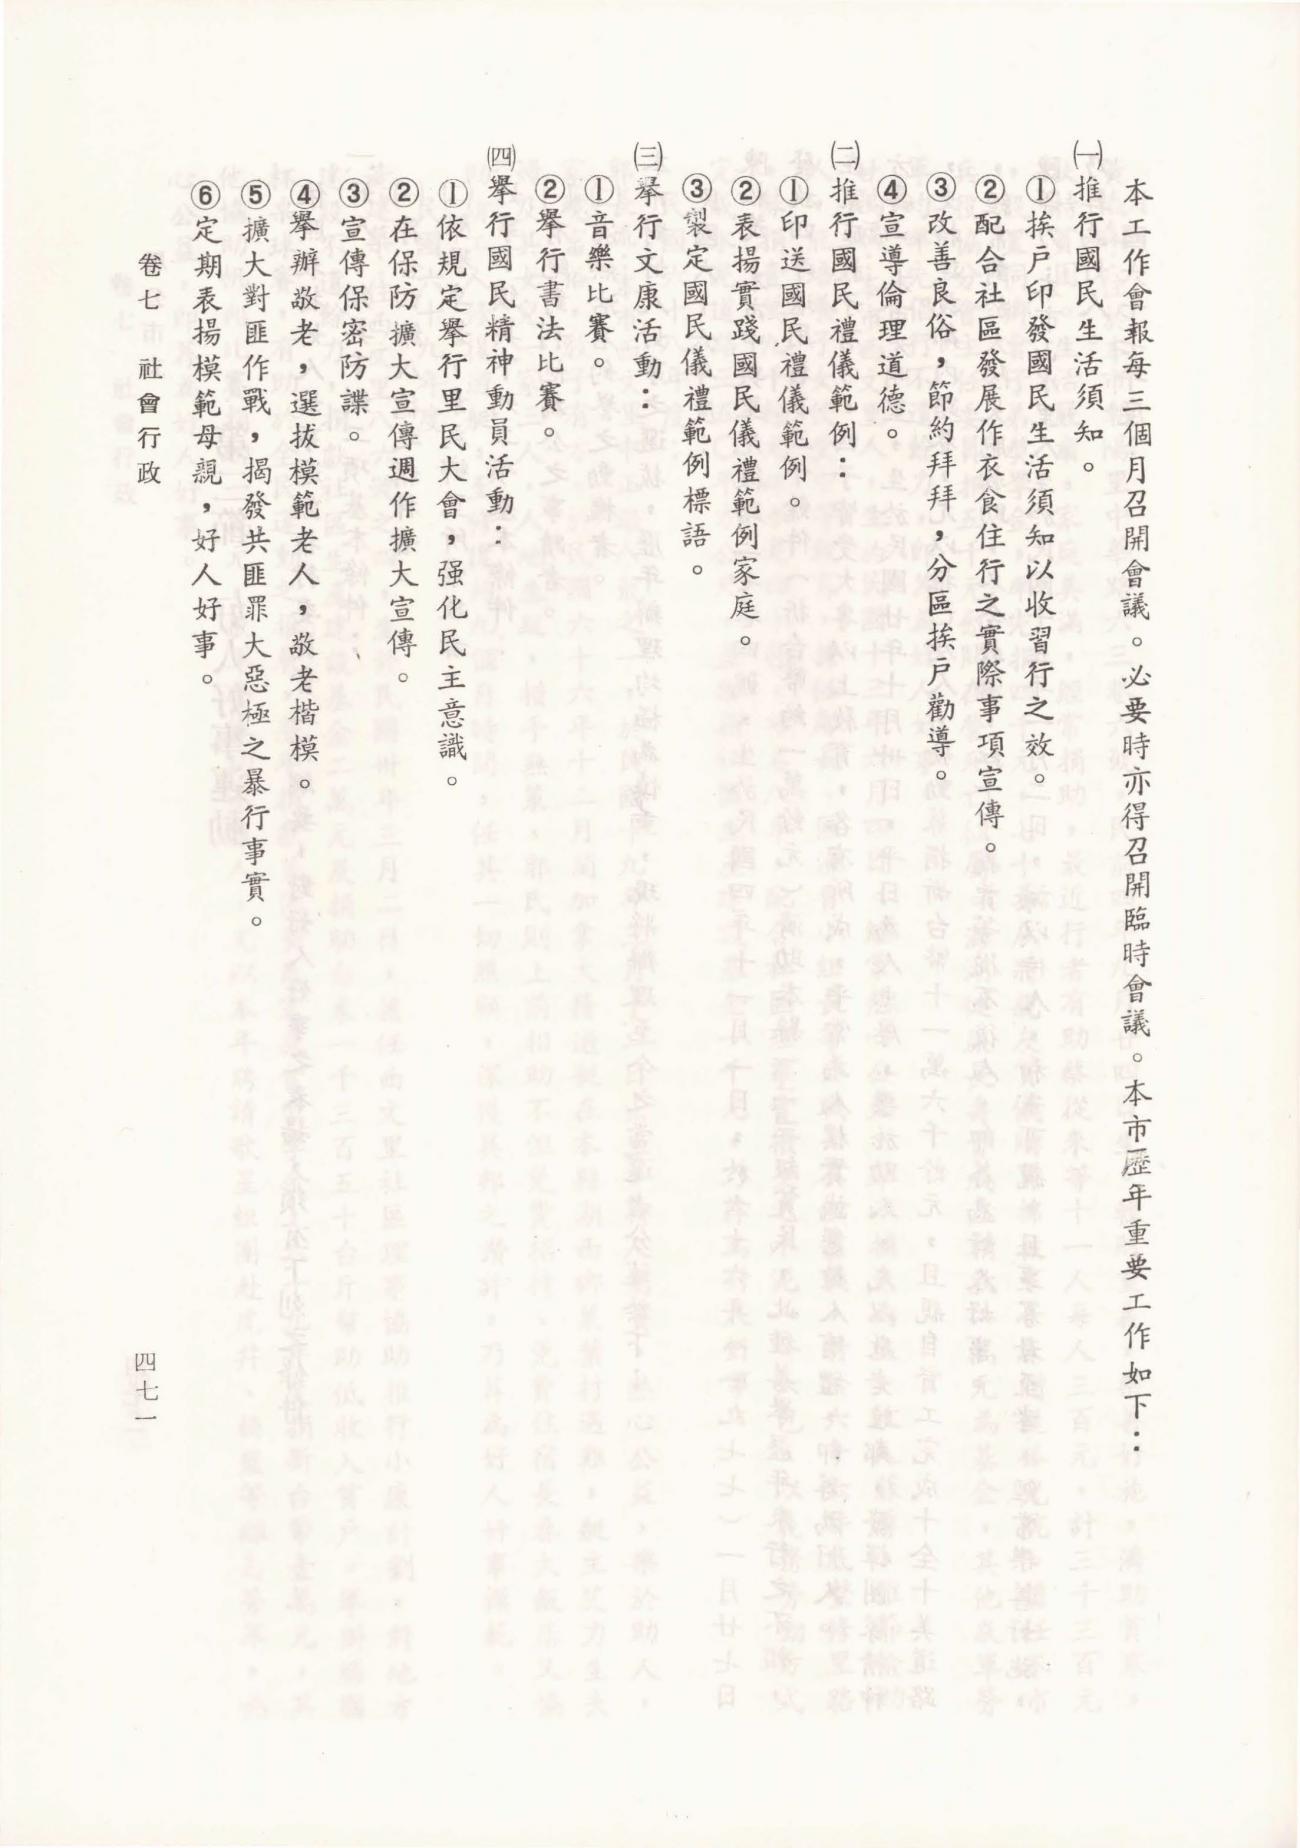 本工作會報每三個月召開會議。必要時亦得召開臨時會議。本市歷年重要工作如下：
㈠推行國民生活須知。
①挨戶印發國民生活須知以收習行之效。
②配合社區發展作衣食住行之實際事項宣傳。
③改善良俗，節約拜拜，分區挨戶勸導。
④宣導倫理道德。
㈡推行國民禮儀範例：
①印送國民禮儀範例。
②表揚實踐國民儀禮範例家庭。
③製定國民儀禮範例標語。
㈢舉行文康活動：
①音樂比賽。
②舉行書法比賽。
㈣舉行國民精神動員活動：
①依規定舉行里民大會，强化民主意識。
②在保防擴大宣傳週作擴大宣傳。
③宣傳保密防諜。
④舉辦敬老，選拔模範老人，敬老楷模。
⑤擴大對匪作戰，揭發共匪罪大惡極之暴行事實。
⑥定期表揚模範母親，好人好事。
卷七　社會行政
四七一